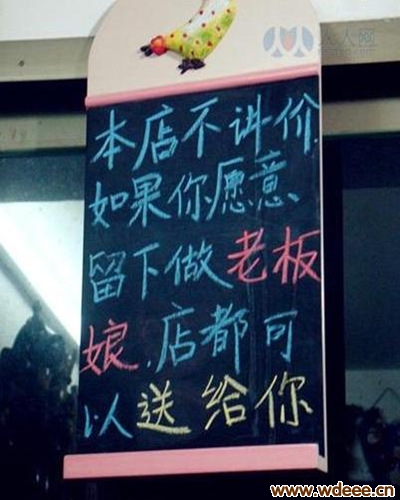 人人网
本店不讲价
如果你愿意
留下做老板
娘.店都可
以送给你
www.wdeee.cn